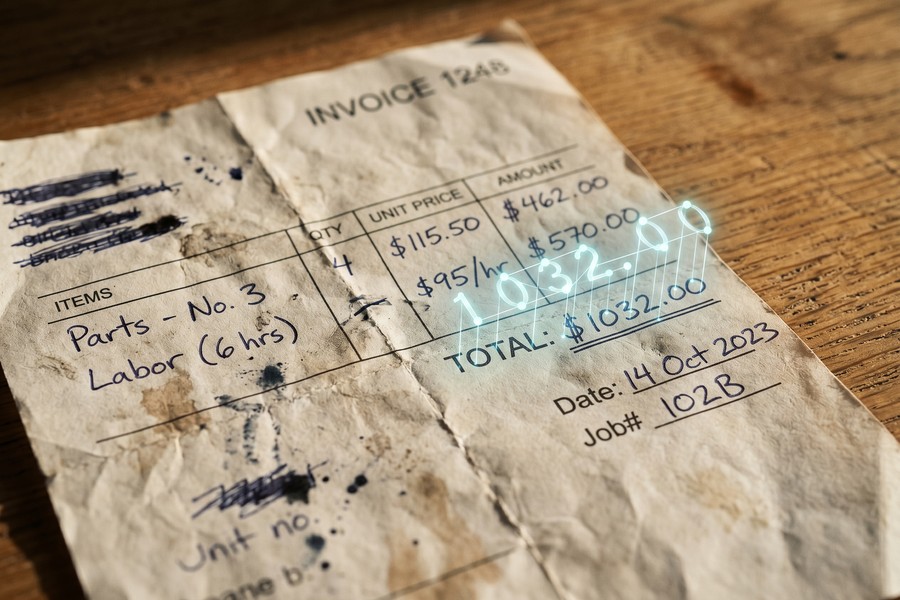 INVOICE 1248
ITEMS QTY UNIT PRICE AMOUNT
Parts - No. 3 4 $115.50 $462.00
Labor (6 hrs) $95/hr $570.00
1032.00
TOTAL: $1032.00
Date: 14 Oct 2023
Job# 102B
Unit no.